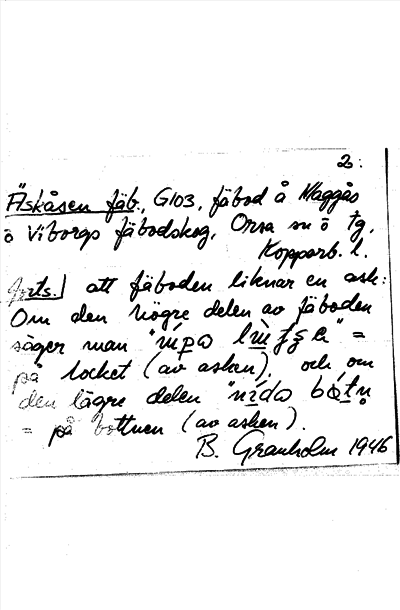 2:
Äskåsen fäb., G103, fäbod å Maggås
ö Viborgs fäbodskog, Orsa sn ö Tg,
Kopparb. l.
forts.| att fäboden liknar en ask:
Om den högre delen av fäboden
säger man "upa =
på locket (av asken), och om
den lägre delen "nida bótn
= på bottnen (av asken).
B. Granholm 1946